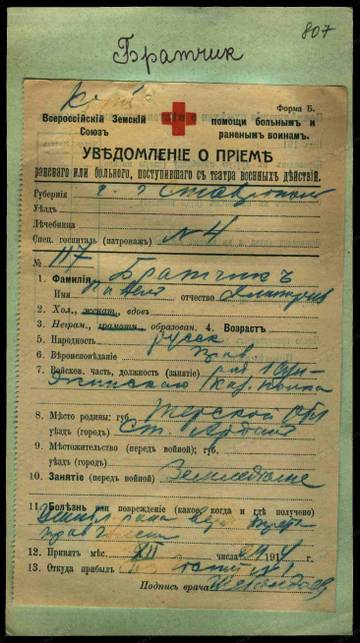 807
Братчик
Форма Б.
Всероссійскій Земскій
Союзъ
помощи больнымъ и
раненымъ воинамъ.
УВѢДОМЛЕНІЕ О ПРІЕМѢ
раненаго или больного, поступившаго съ театра военныхъ дѣйствій.
Губернія г. Ставрополь
Уѣздъ
Лѣчебница
Спец. госпиталь (патронажъ) № 4
№ 117
1. Фамилія Братчикъ
Имя Павелъ отчество
2. Хол., женат., вдов.
3. Неграм., грамотн., образован. 4. Возрастъ
5. Народность русск
6. Вѣроисповѣданіе прав
7. Войсков. часть, должность (занятіе) ряд 1 Сун-
женскаго Каз. полка
8. Мѣсто родины; губ. Терской Обл
уѣздъ (городъ) Ст.
9. Мѣстожительство (передъ войной); губ.
уѣздъ (городъ)
10. Занятіе (передъ войной) Земледѣліе
11. Болѣзнь или поврежденіе (какое, когда и гдѣ получено)
рана
12. Принятъ мѣс. XII числа 1914 г.
13. Откуда прибылъ
Подпись врача